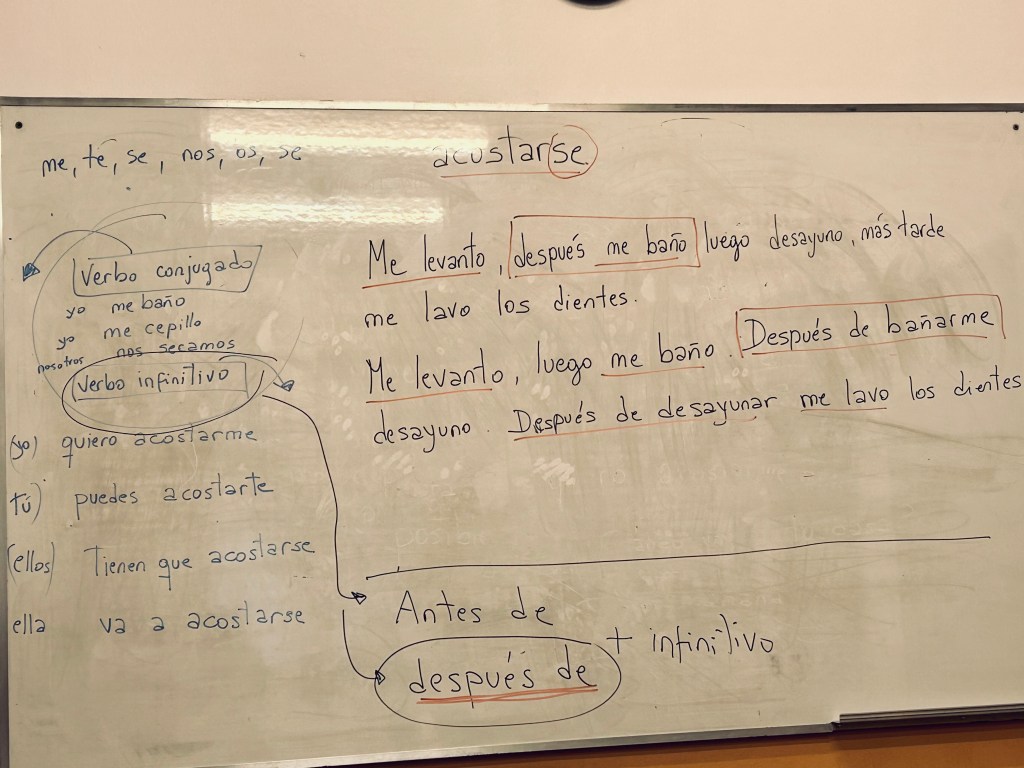 me, té, se, nos, os, se
acostarse
Verbo conjugado
yo me baño
yo me cepillo
nosotros nos secamos
Verbo infinitivo
(yo) quiero acostarme
tú) puedes acostarte
(ellos) Tienen que acostarse
ella va a acostarse
Me levanto, después me baño luego desayuno, más tarde
me lavo los dientes.
Me levanto, luego me baño. Después de bañarme
desayuno. Después de desayunar me lavo los dientes
Antes de
después de + infinitivo